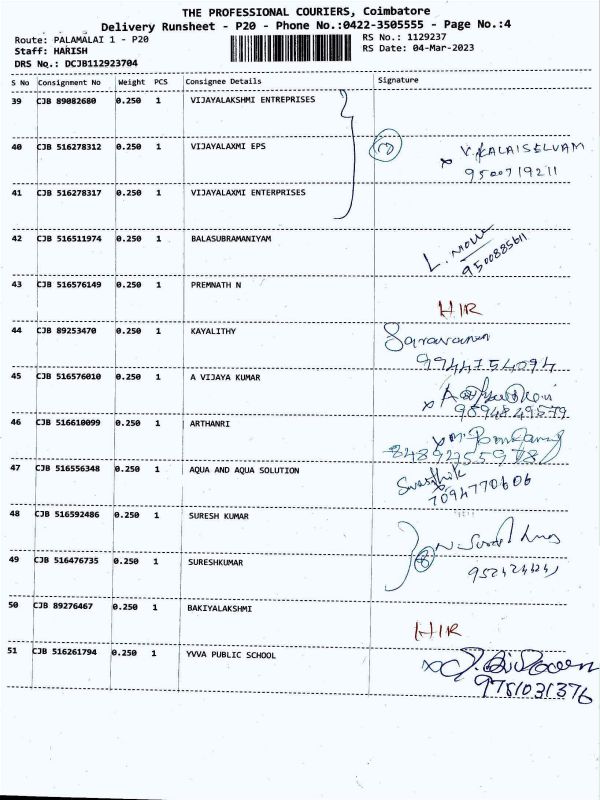 THE PROFESSIONAL COURIERS, Coimbatore
Delivery Runsheet - P20 - Phone No.:0422-3505555 - Page No.:4
Route: PALAMALAI 1 - P20 RS No.: 1129237
Staff: HARISH RS Date: 04-Mar-2023
DRS No.: DCJB112923704
S No Consignment No Weight PCS Consignee Details Signature
39 CJB 89082680 0.250 1 VIJAYALAKSHMI ENTREPRISES
40 CJB 516278312 0.250 1 VIJAYALAXMI EPS V.KALAISELVAM
9500719211
41 CJB 516278317 0.250 1 VIJAYALAXMI ENTERPRISES
42 CJB 516511974 0.250 1 BALASUBRAMANIYAM
9500885611
43 CJB 516576149 0.250 1 PREMNATH N
HIR
44 CJB 89253470 0.250 1 KAYALITHY Saravanan
9944754094
45 CJB 516576010 0.250 1 A VIJAYA KUMAR
9894849579
46 CJB 516610099 0.250 1 ARTHANRI
8489255978
47 CJB 516556348 0.250 1 AQUA AND AQUA SOLUTION Swasthik
7094770606
48 CJB 516592486 0.250 1 SURESH KUMAR
49 CJB 516476735 0.250 1 SURESHKUMAR
50 CJB 89276467 0.250 1 BAKIYALAKSHMI
HIR
51 CJB 516261794 0.250 1 YVVA PUBLIC SCHOOL
9751031376